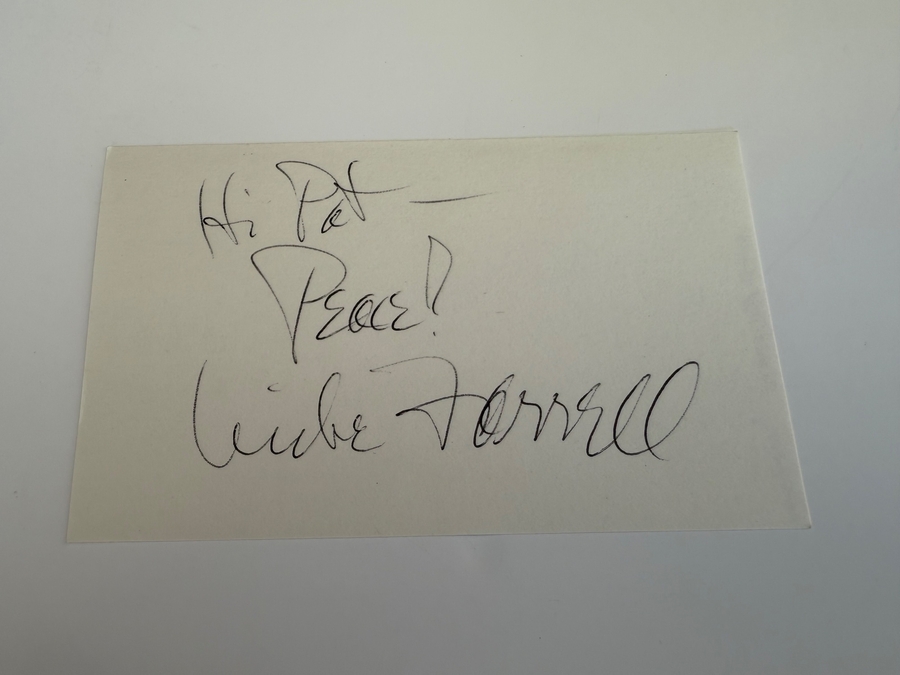 Hi Pat —
Peace!
Mike Farrell